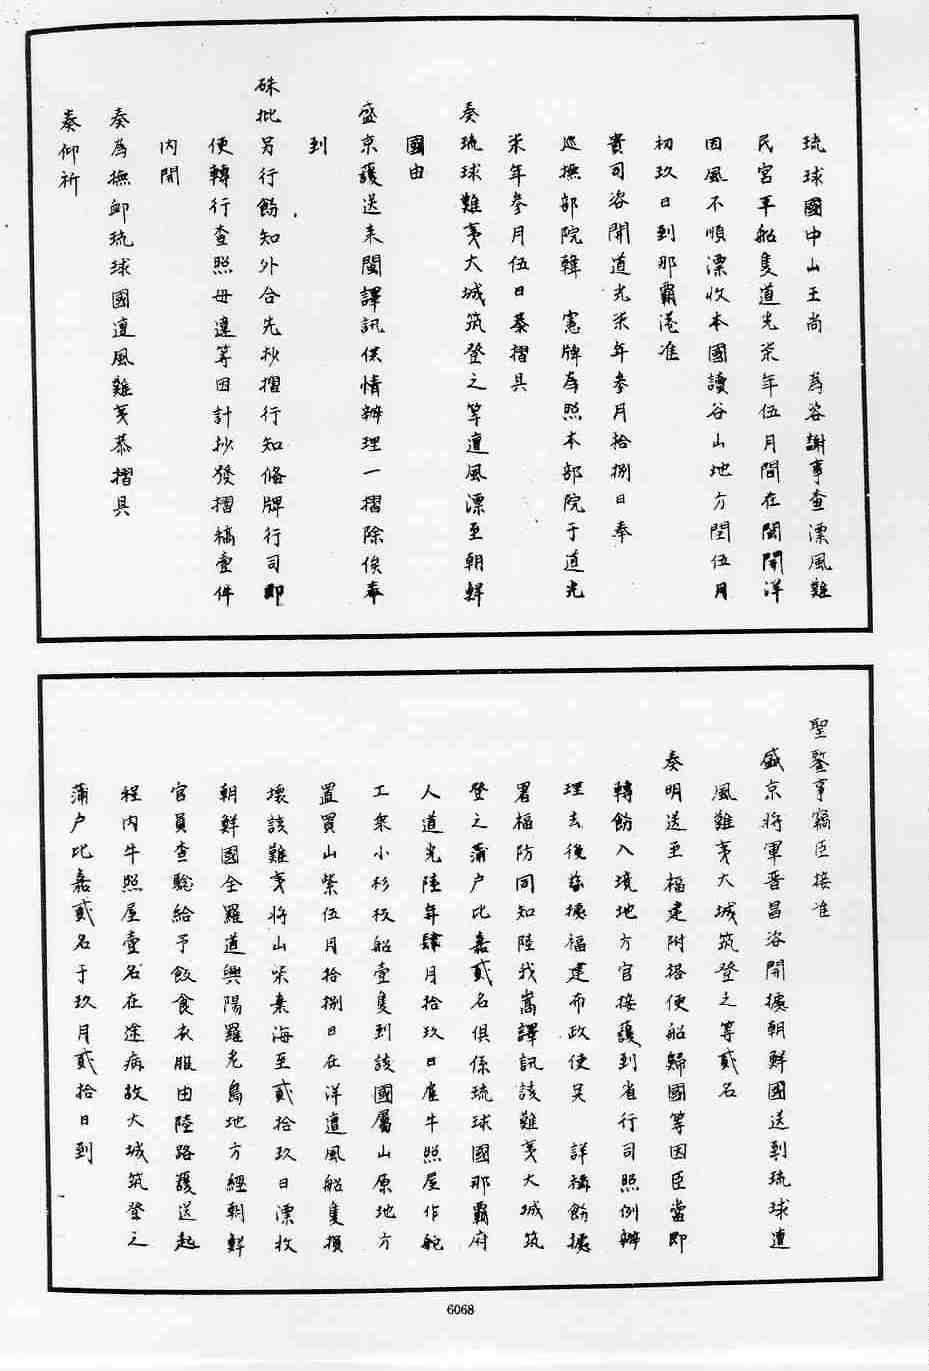 琉球國中山王尚　為咨謝事查漂風難
民宮平船隻道光柒年伍月間在閩開洋
因風不順漂收本國讀谷山地方閏伍月
初玖日到那霸港准
貴司咨開道光柒年參月拾捌日奉
巡撫部院韓　憲牌為照本部院于道光
柒年參月伍日恭摺具
奏琉球難夷大城筑登之等遭風漂至朝鮮
國由
盛京護送來閩譯訊供情辦理一摺除俟奉
到
硃批另行飭知外合先抄摺行知備牌行司即
便轉行查照毋違等因計抄發摺稿壹件
內開
奏為撫卹琉球國遭風難夷恭摺具
奏仰祈
聖鑒事竊臣接准
盛京將軍晋昌咨開據朝鮮國送到琉球遭
風難夷大城筑登之等貳名
奏明送至福建附搭便船歸國等因臣當即
轉飭入境地方官接護到省行司照例辦
理去後茲據福建布政使吴　詳稱飭據
署福防同知陸我嵩譯訊該難夷大城筑
登之蒲戶比嘉貳名俱係琉球國那霸府
人道光陸年肆月拾玖日雇牛照屋作舵
工乘小杉板船壹隻到該國屬山原地方
置買山柴伍月拾捌日在洋遭風船隻損
壞該難夷將山柴棄海至貳拾玖日漂收
朝鮮國全羅道興陽羅老島地方經朝鮮
官員查驗給予飯食衣服由陸路護送起
程內牛照屋壹名在途病故大城筑登之
蒲戶比嘉貳名于玖月貳拾日到
6068